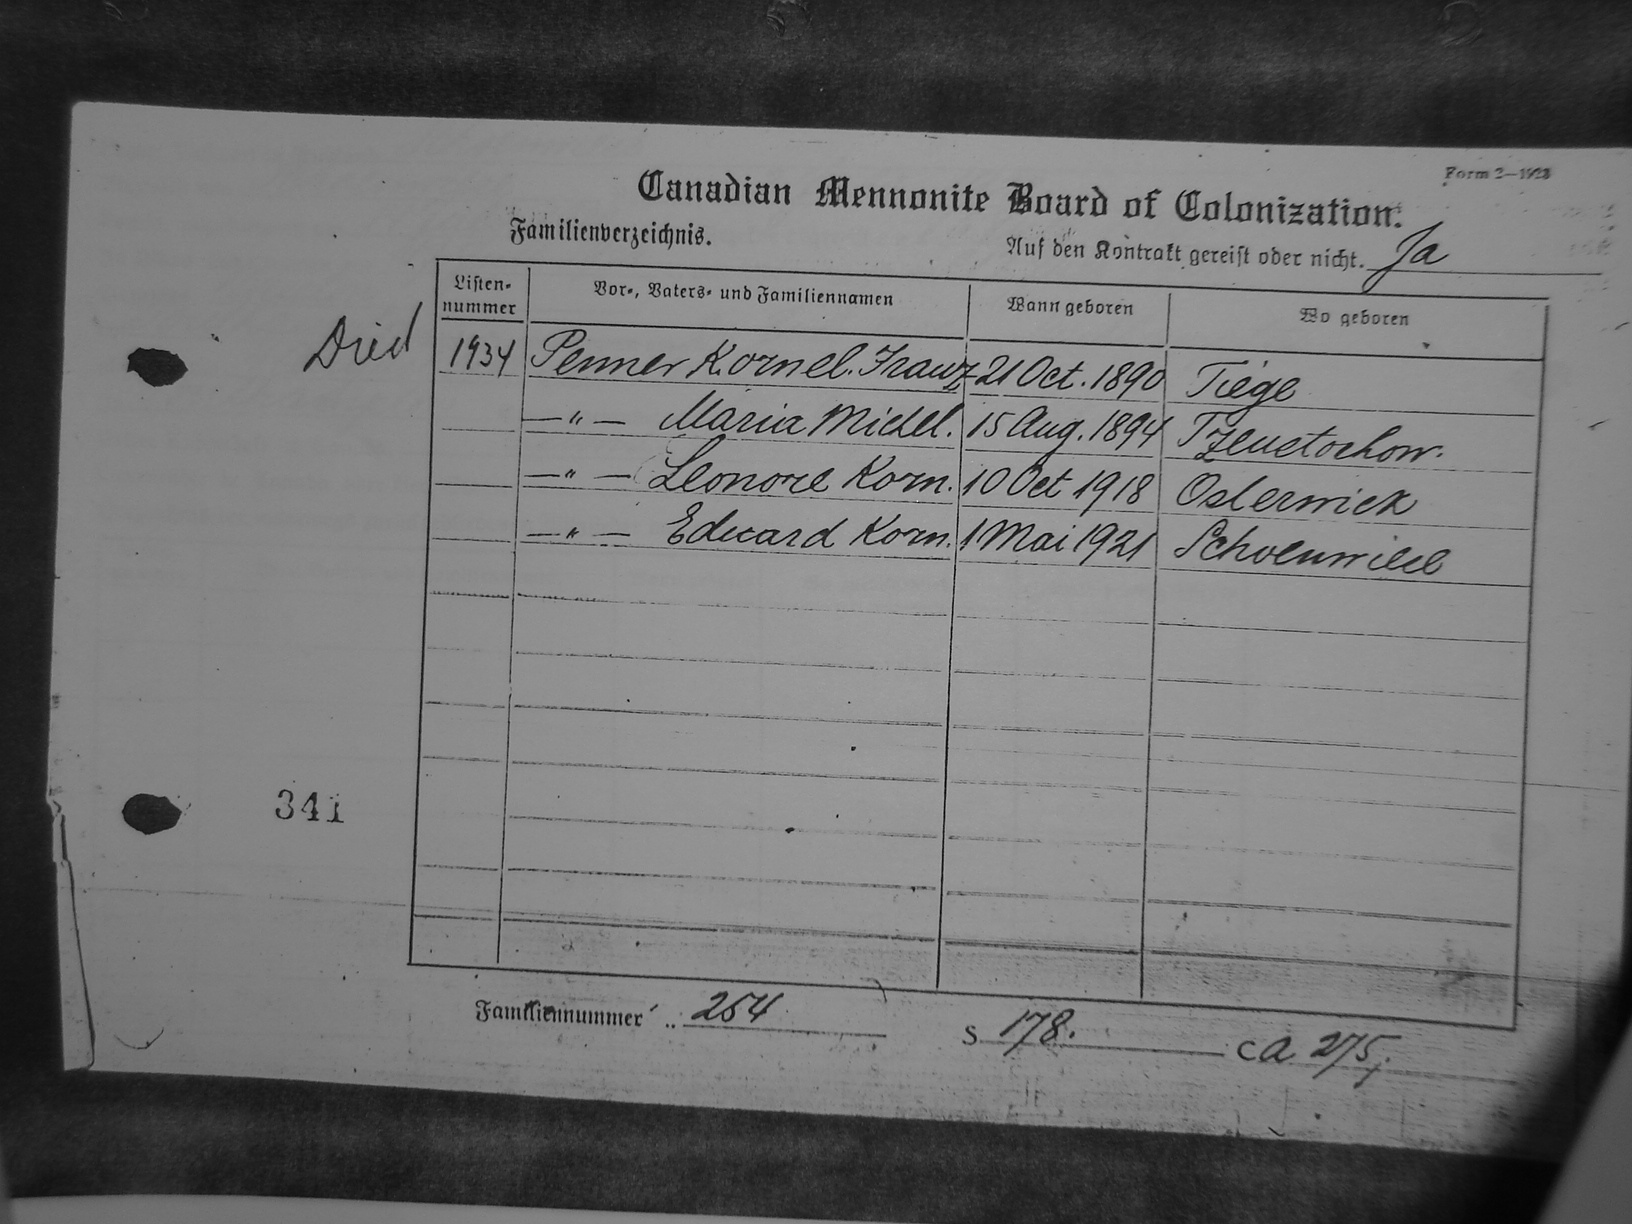 Form 2—1923
Canadian Mennonite Board of Colonization.
Familienverzeichnis.
Auf den Kontrakt gereist oder nicht. Ja
Listen-nummer Vor-, Vaters- und Familiennamen Wann geboren Wo geboren
Died 1934 Penner Kornel. Franz 21 Oct. 1890 Tiege
—"— Maria Michel. 15 Aug. 1894
—"— Leonore Korn. 10 Oct 1918 Osterwick
—"— Eduard Korn. 1 Mai 1921 Schoenwiese
341
Familiennummer .. 254 S 178. CA 275,